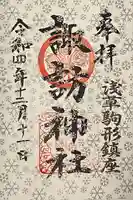 奉拝
浅草駒形鎮座
諏訪神社
令和四年十二月十一日